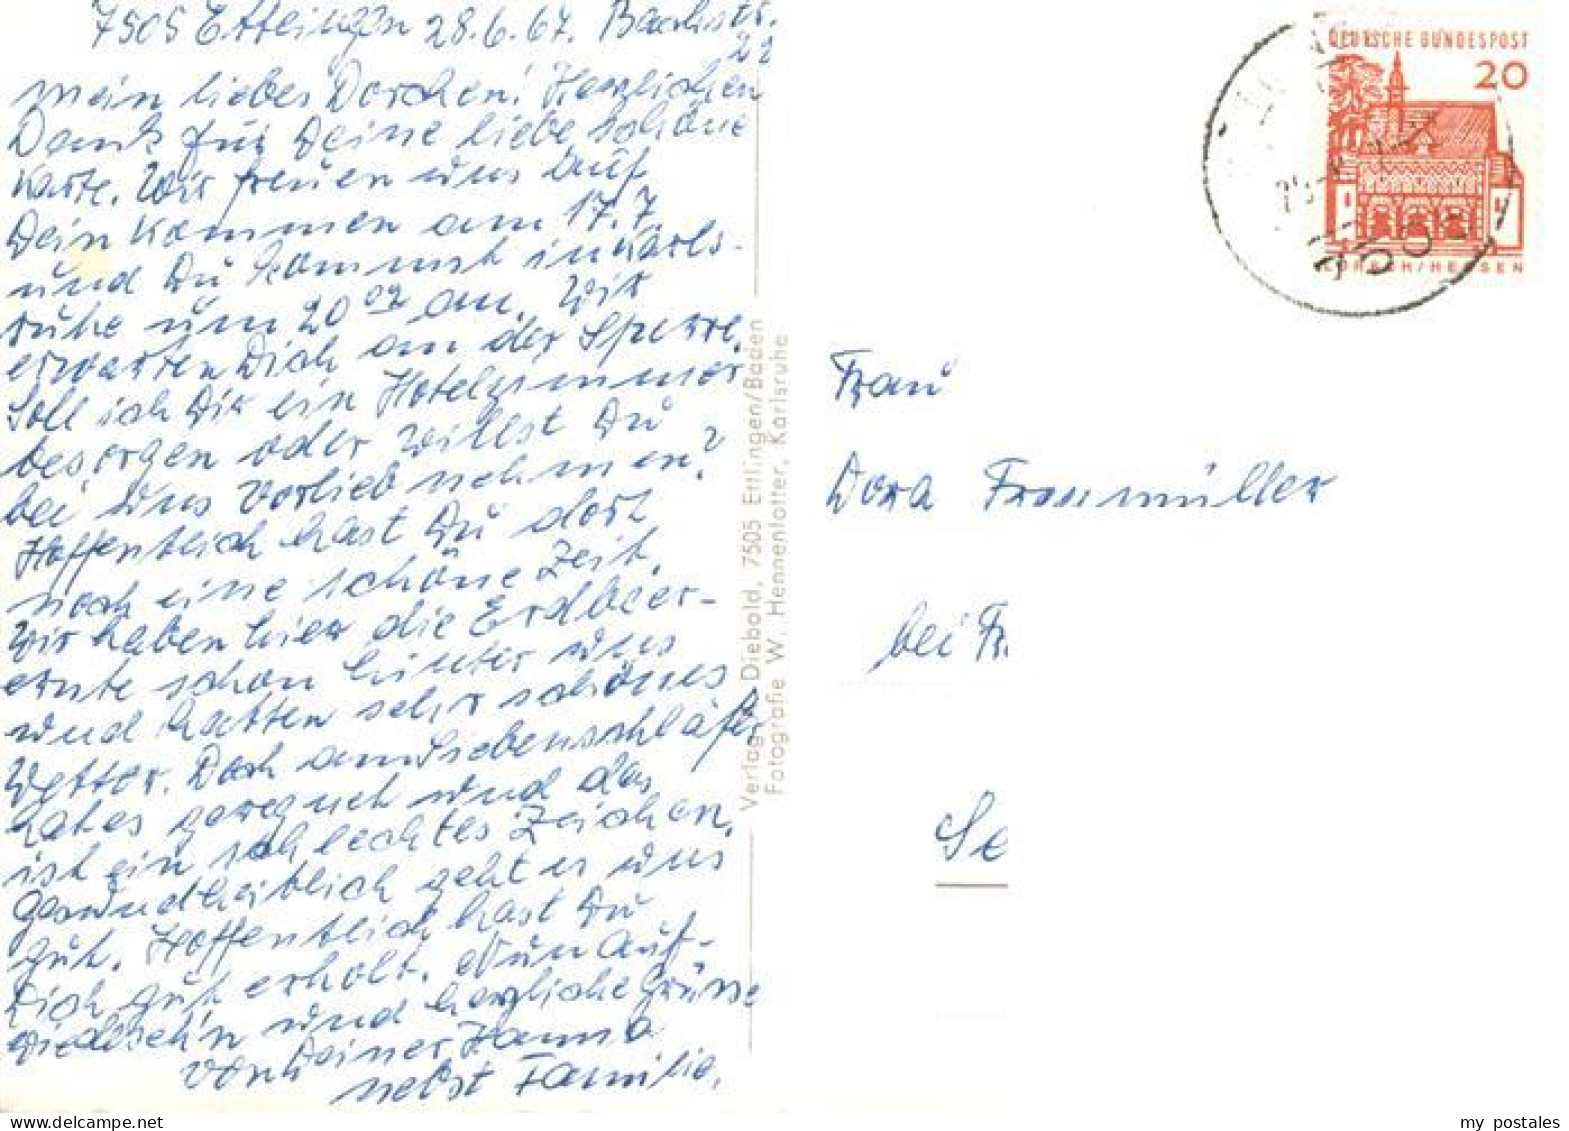 7505 Ettlingen 28.6.67. Bachstr.
22
mein liebes Dorchen! Herzlichen
Dank für Deine liebe schöne
Karte. Wir freuen uns auf
Dein Kommen am 17.7.
und Du kommst in Karls-
ruhe um 20 09 an. Wir
erwarten Dich an der Sperre.
Soll ich Dir ein Hotelzimmer
besorgen oder willst Du
bei uns vorlieb nehmen?
Hoffentlich hast Du dort
noch eine schöne Zeit.
Wir haben hier die Erdbeer-
ernte schon hinter uns
und hatten sehr schönes
Wetter. Doch am Siebenschläfer
hat es geregnet und das
ist ein schlechtes Zeichen.
Gesundheitlich geht es uns
gut. Hoffentlich hast Du
Dich gut erholt. Nun auf-
wiedseh'n und herzliche Grüsse
von Deiner Hanna
nebst Familie.
Verlag Diebold, 7505 Ettlingen/Baden
Fotografie W. Hennenlotter, Karlsruhe
DEUTSCHE BUNDESPOST
20
LORSCH/HESSEN
Frau
Dora Fronmüller
bei Fr.
Se
my postales